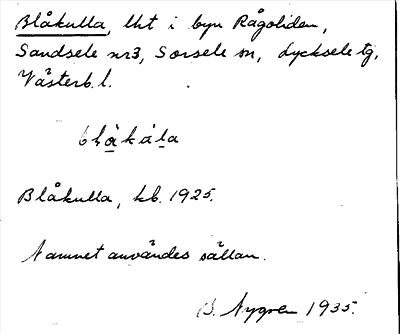 Blåkulla, lht i byn Rågoliden,
Sandsele nr3, Sorsele sn, Lycksele tg,
Västerb. l.
blå̀kála
Blåkulla, kb. 1925.
Namnet användes sällan.
B. Nygren 1935.